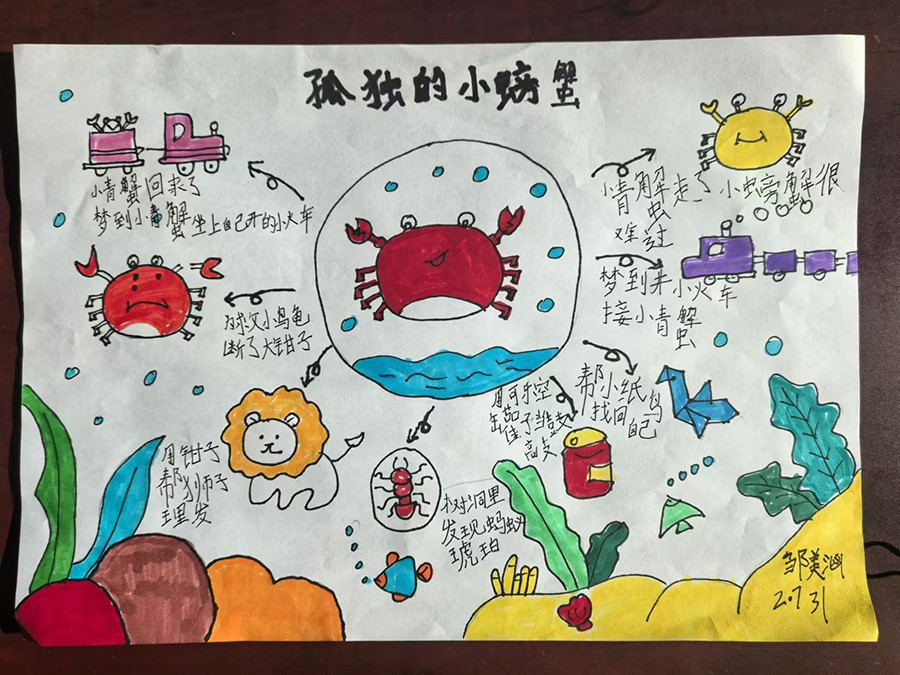 孤独的小螃蟹
小青蟹回来了
梦到小青蟹坐上自己开的小火车
小青解走了 小虫旁解很
虫
难过
梦到来小火车
接小青解
虫
为救父小乌龟
断了大钳子
帮小纸鸟
找回自己
用可乐空
当鼓
高支
用钳子
帮狮子
理发
树洞里
发现蚂蚁
琥珀
邹美汹
2.7 31